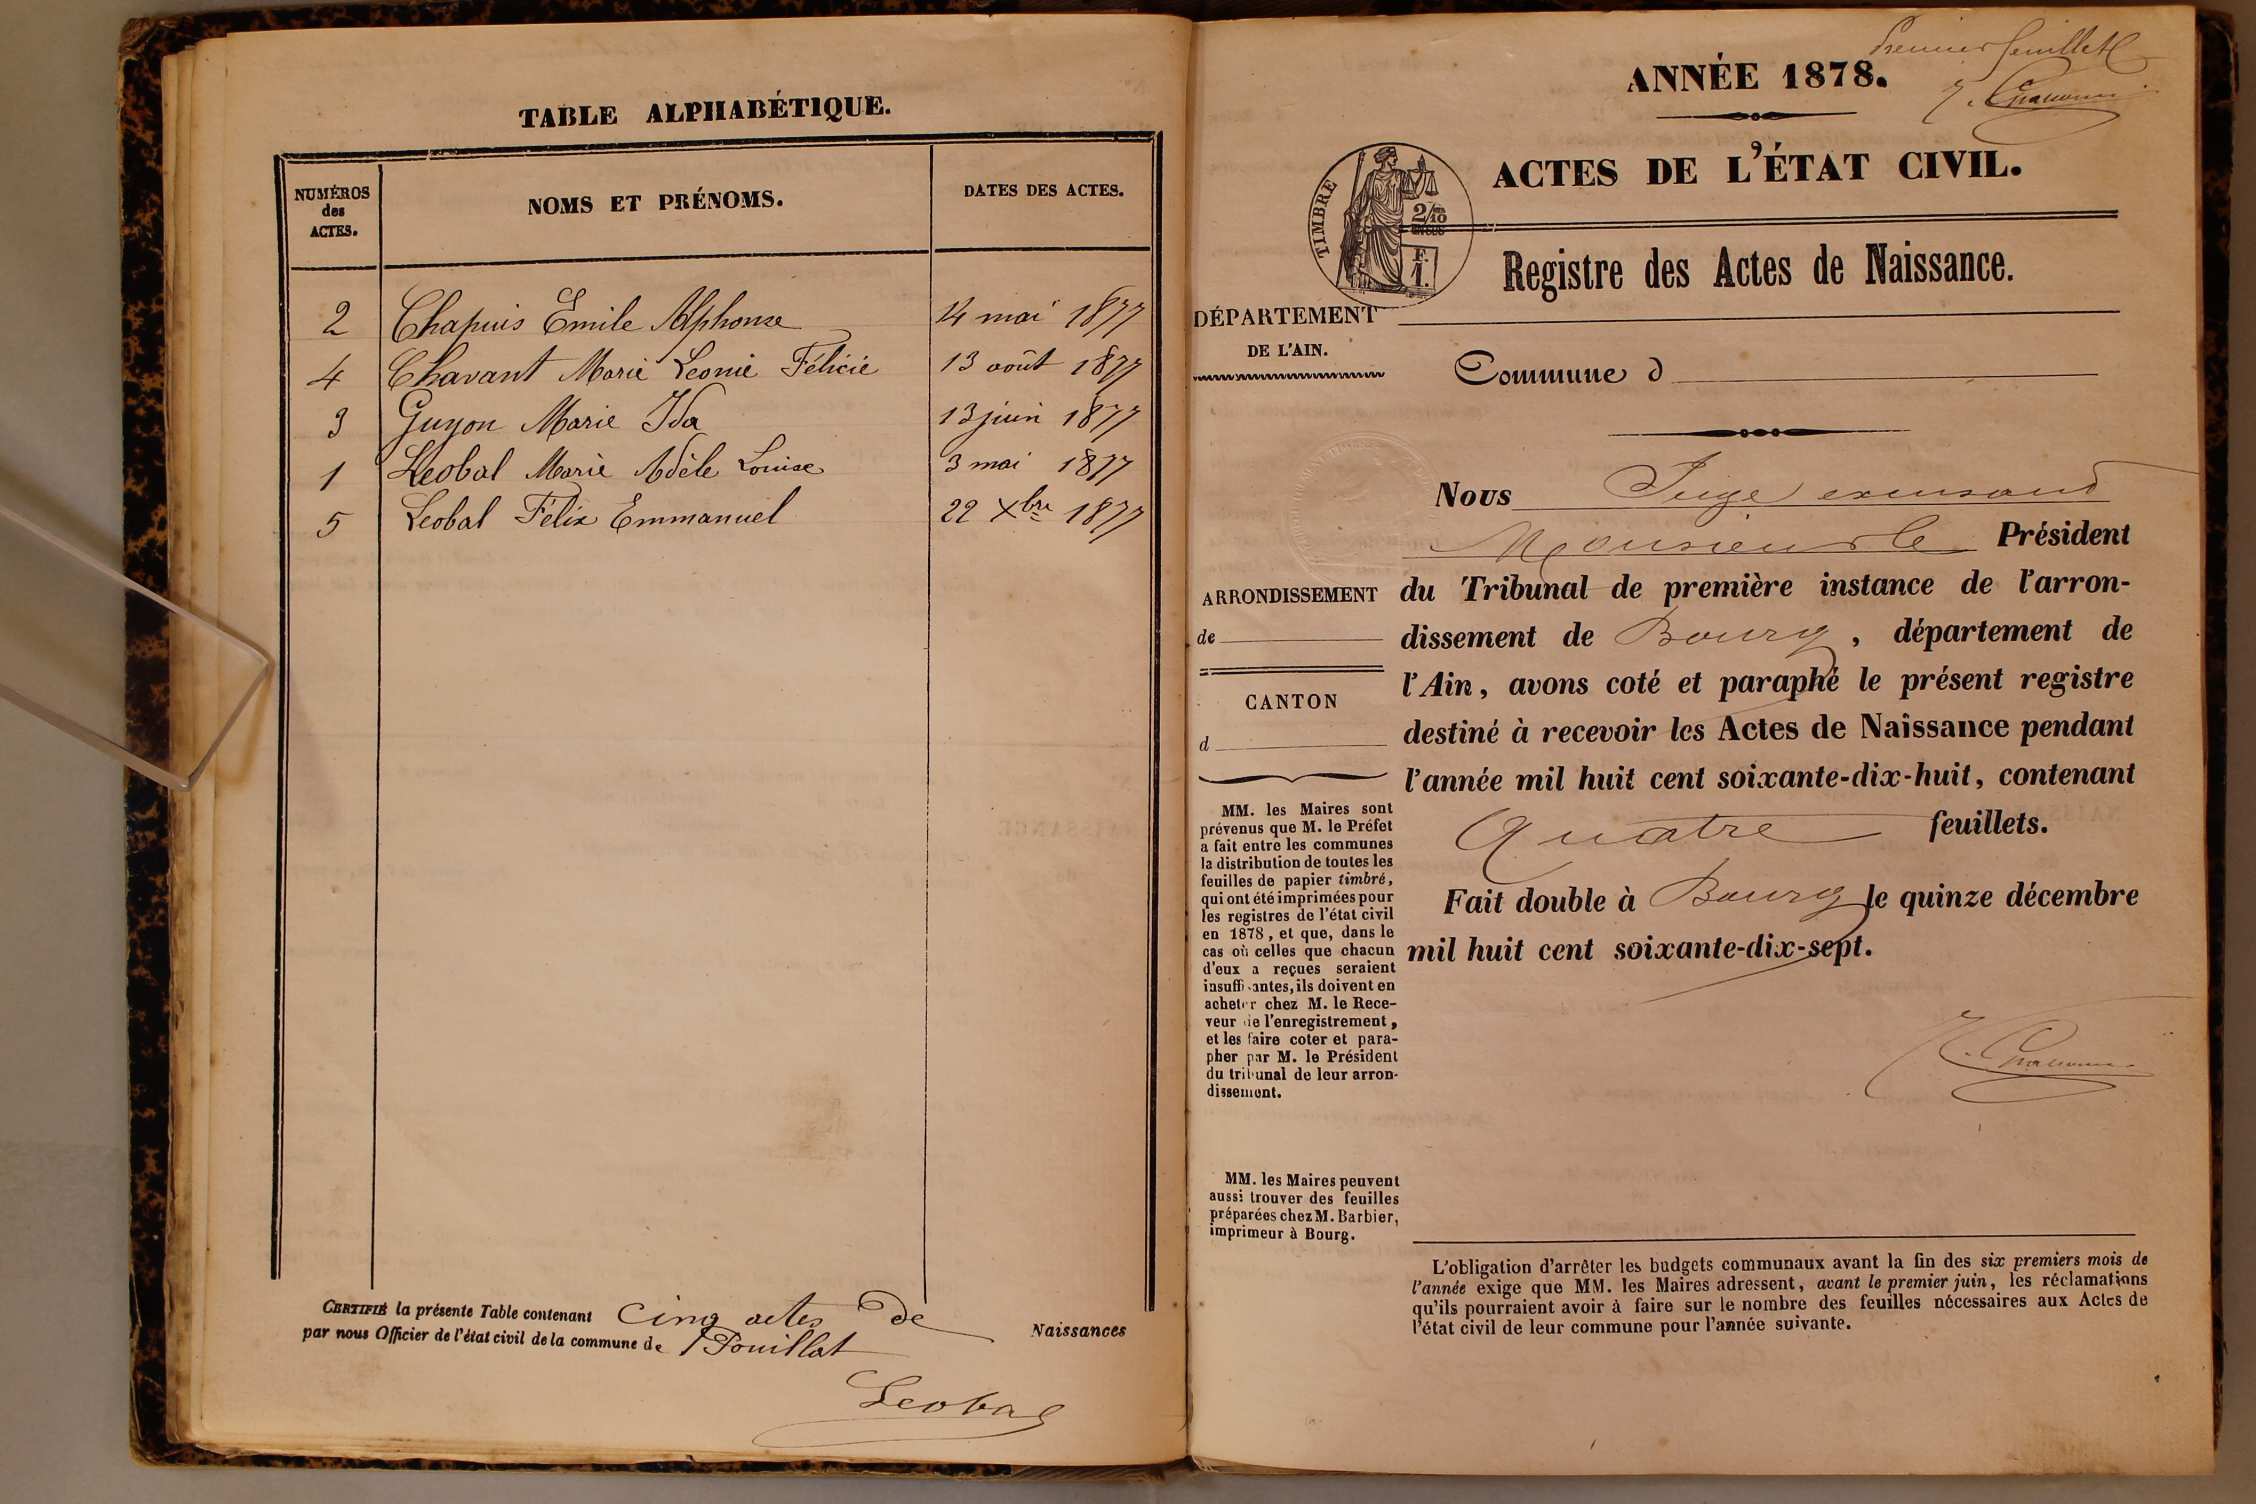 TABLE ALPHABÉTIQUE.
NUMÉROS
des
ACTES.
NOMS ET PRÉNOMS.
DATES DES ACTES.
2 Chapuis Emile Alphonse 14 mai 1877
4 Chavant Marie Leonie Félicie 13 août 1877
3 Guyon Marie Ida 13 juin 1877
1 Leobal Marie Adèle Louise 3 mai 1877
5 Leobal Félix Emmanuel 22 Xbre 1877
CERTIFIÉ la présente Table contenant cinq actes de Naissances
par nous Officier de l'état civil de la commune de Pouillat
Leobal
Premier feuillet
ANNÉE 1878.
ACTES DE L'ÉTAT CIVIL.
TIMBRE
2/10
EN SUS
F.
1.
Registre des Actes de Naissance.
DÉPARTEMENT
DE L'AIN.
Commune d
ARRONDISSEMENT
de
CANTON
d
MM. les Maires sont
prévenus que M. le Préfet
a fait entre les communes
la distribution de toutes les
feuilles de papier timbré,
qui ont été imprimées pour
les registres de l'état civil
en 1878, et que, dans le
cas où celles que chacun
d'eux a reçues seraient
insuffisantes, ils doivent en
acheter chez M. le Rece-
veur de l'enregistrement,
et les faire coter et para-
pher par M. le Président
du tribunal de leur arron-
dissement.
MM. les Maires peuvent
aussi trouver des feuilles
préparées chez M. Barbier,
imprimeur à Bourg.
Nous Juge
Monsieur le Président
du Tribunal de première instance de l'arron-
dissement de Bourg, département de
l'Ain, avons coté et paraphé le présent registre
destiné à recevoir les Actes de Naissance pendant
l'année mil huit cent soixante-dix-huit, contenant
Quatre feuillets.
Fait double à Bourg le quinze décembre
mil huit cent soixante-dix-sept.
L'obligation d'arrêter les budgets communaux avant la fin des six premiers mois de
l'année exige que MM. les Maires adressent, avant le premier juin, les réclamations
qu'ils pourraient avoir à faire sur le nombre des feuilles nécessaires aux Actes de
l'état civil de leur commune pour l'année suivante.